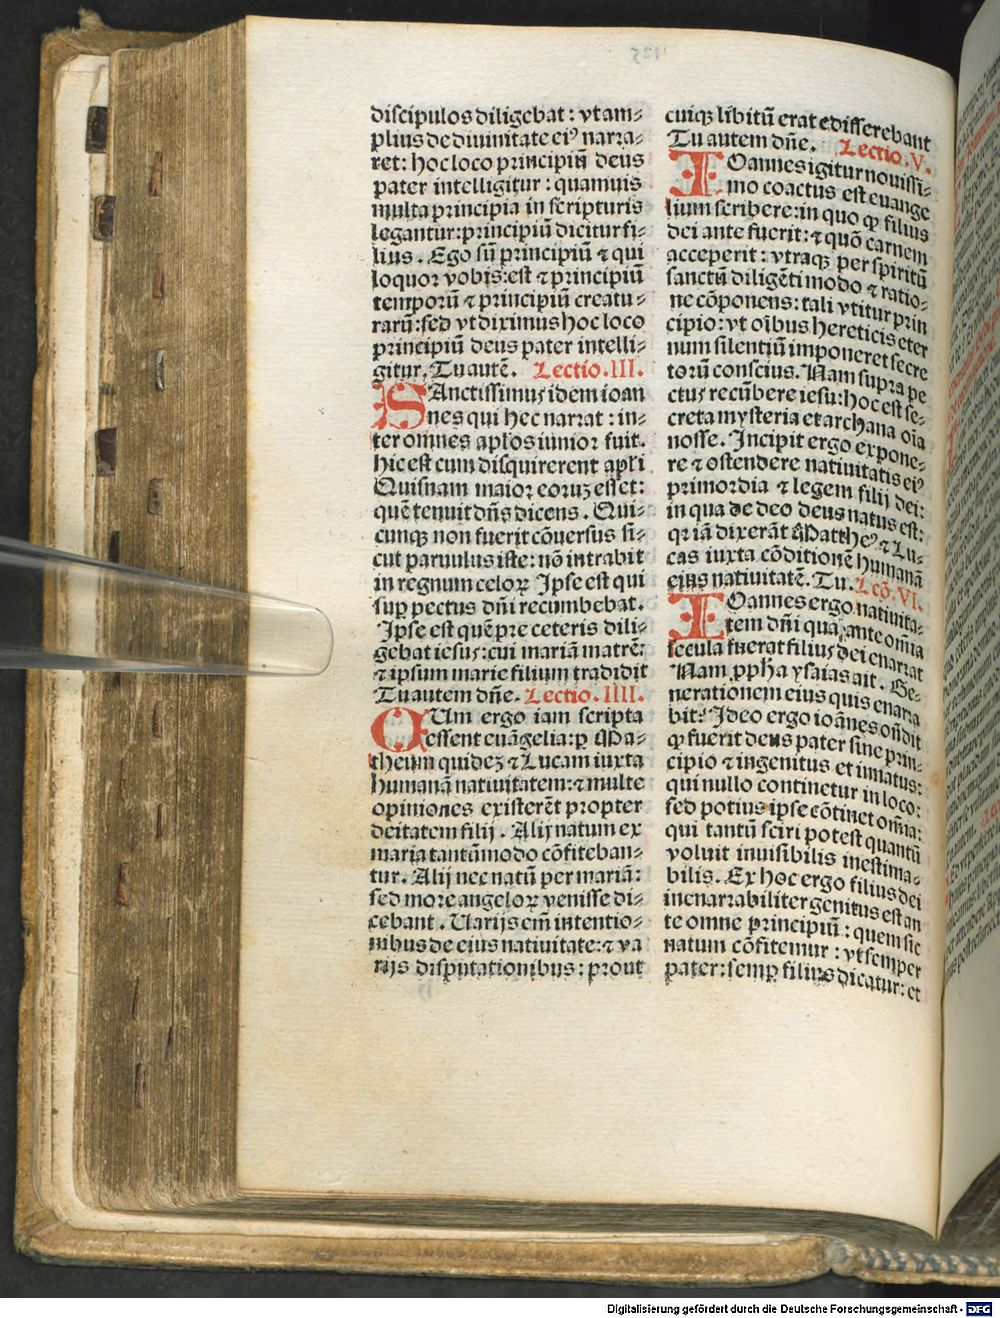 discipulos diligebat: vt am⸗
plius de diuinitate eiꝰ narra⸗
ret: hoc loco principiũ deus
pater intelligitur: quamuis
multa principia in scripturis
legantur: principiũ dicitur fi⸗
lius. Ego sũ principiũ ⁊ qui
loquor vobis: est ⁊ principiũ
temporũ ⁊ principiũ creatu⸗
rarũ: sed vt diximus hoc loco
principiũ deus pater intelli⸗
gitur. Tu autẽ. Lectio. III.
SAnctissimus idem ioan
nes qui hec narrat: in⸗
ter omnes apl'os iunior fuit.
Hic est cum disquirerent apl'i
Quisnam maior eoruꝫ esset:
quẽ tenuit dñs dicens. Qui⸗
cunqꝫ non fuerit cõuersus si⸗
cut paruulus iste: nõ intrabit
in regnum celoꝝ Ipse est qui
suꝑ pectus dñi recumbebat.
Ipse est quẽ pre ceteris dili⸗
gebat iesus: cui mariã matrẽ:
⁊ ipsum marie filium tradidit
Tu autem dñe. Lectio. IIII.
CUm ergo iam scripta
essent euãgelia: ꝑ Ma⸗
theum quidez ⁊ Lucam iuxta
humanã natiuitatem: ⁊ multe
opiniones existerẽt propter
deitatem filij. Alij natum ex
maria tantũmodo cõfiteban⸗
tur. Alij nec natũ per mariã:
sed more angeloꝝ venisse di⸗
cebant. Uarijs em̃ intentio⸗
nibus de eius natiuitate: ⁊ va
rijs disputationibus: prout
cuiqꝫ libitũ erat edisserebant
Tu autem dñe. Lectio. V.
IOannes igitur nouissi⸗
mo coactus est euange
lium scribere: in quo ꝙ filius
dei ante fuerit: ⁊ quõ carnem
acceperit: vtraqꝫ per spiritũ
sanctũ diligẽti modo ⁊ ratio⸗
ne cõponens: tali vtitur prin
cipio: vt oĩbus hereticis eter
num silentiũ imponeret secre
torũ conscius. Nam supra pe
ctus recũbere iesu: hoc est se⸗
creta mysteria et archana oĩa
nosse. Incipit ergo expone⸗
re ⁊ ostendere natiuitatis eiꝰ
primordia ⁊ legem filij dei:
in qua de deo deus natus est:
qꝛ iã dixerãt Mattheꝰ ⁊ Lu⸗
cas iuxta cõditionẽ humanã
eius natiuitatẽ. Tu. Lcõ. VI.
IOannes ergo natiuita⸗
tem dñi qua ante omĩa
secula fuerat filius dei enarrat
Nam ꝓpha ysaias ait. Ge⸗
nerationem eius quis enarra
bit? Ideo ergo ioãnes oñdit
ꝙ fuerit deus pater sine prin⸗
cipio ⁊ ingenitus et innatus:
qui nullo continetur in loco:
sed potius ipse cõtinet omĩa:
qui tantũ sciri potest quantũ
voluit inuisibilis inestima⸗
bilis. Ex hoc ergo filius dei
inenarrabiliter genitus est an
te omne principiũ: quem sic
natum cõfitemur: vt semper
pater: semꝑ filius dicatur: et
Digitalisierung gefördert durch die Deutsche Forschungsgemeinschaft - DFG